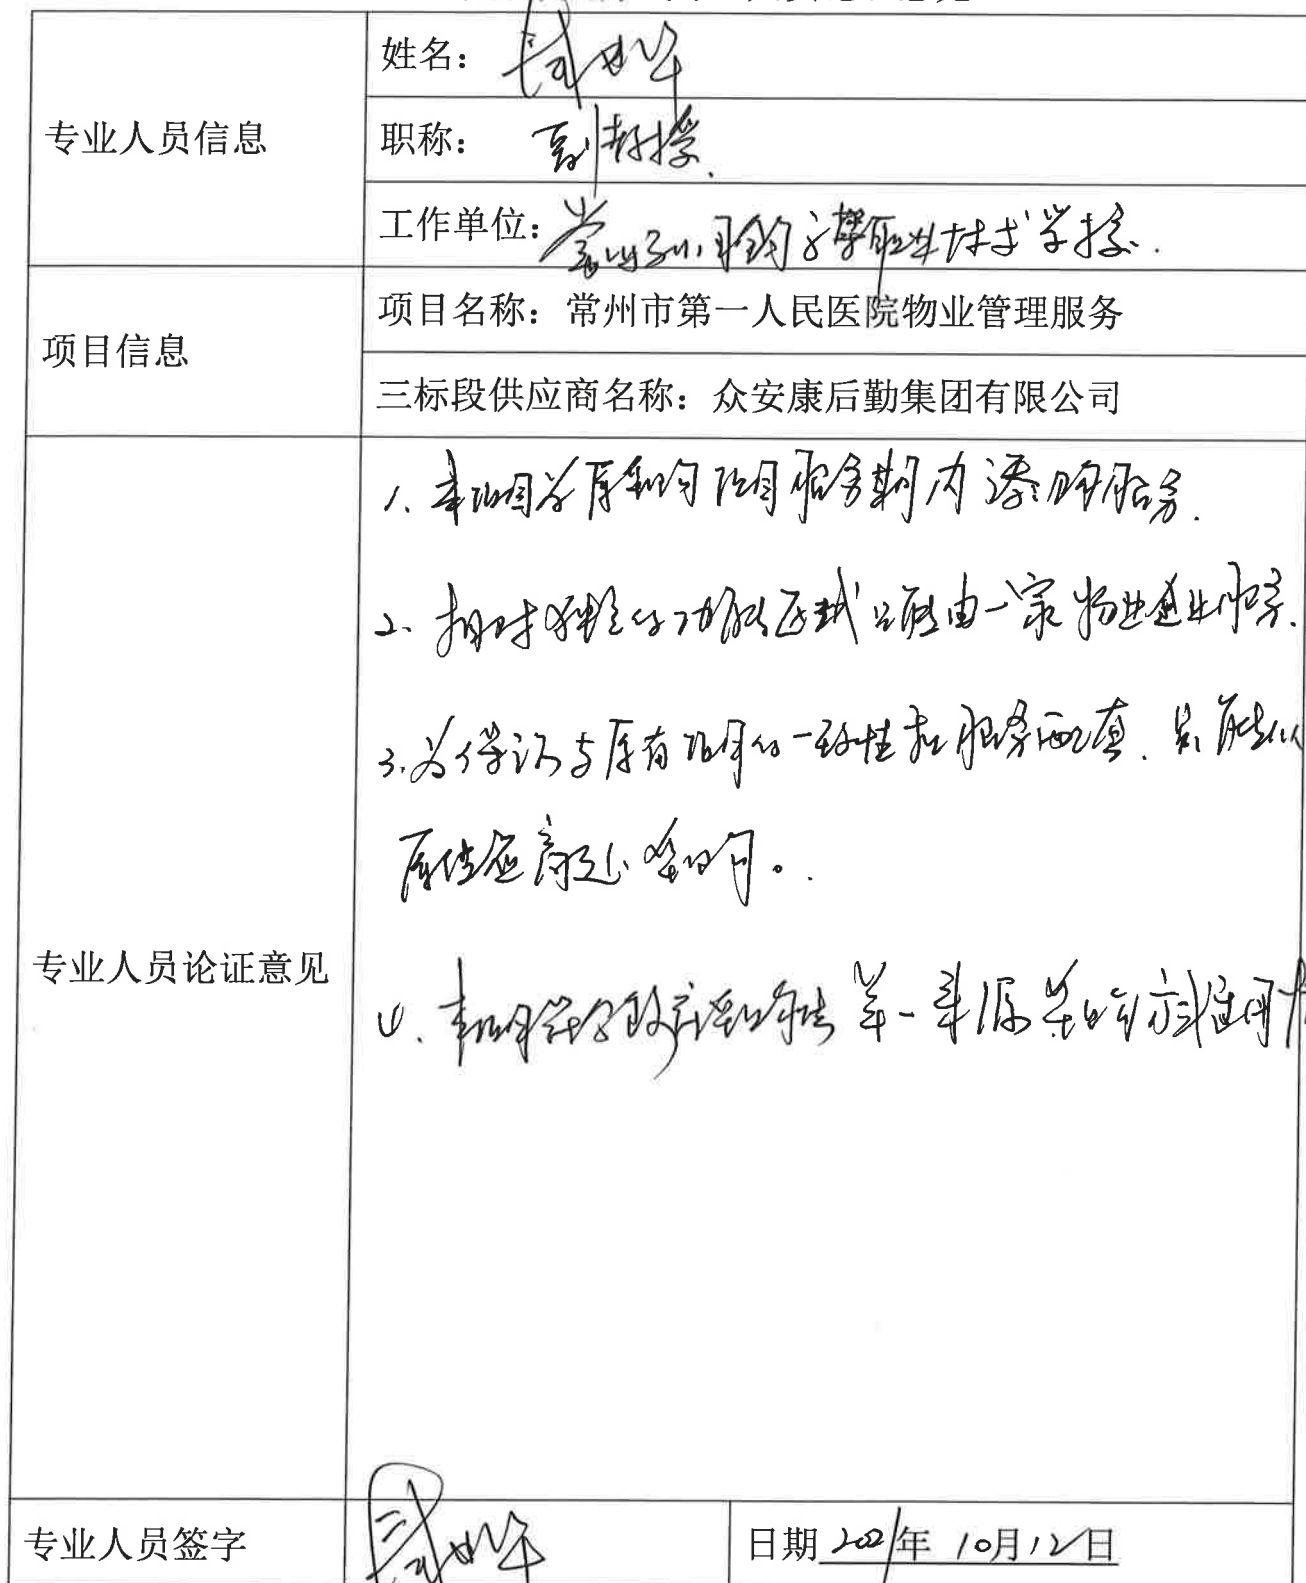 专业人员信息
姓名：
职称： 副教授.
工作单位： 常州 职业技术学校.
项目信息
项目名称：常州市第一人民医院物业管理服务
三标段供应商名称：众安康后勤集团有限公司
专业人员论证意见
1. 本项目为原采购项目服务期内添购服务.
2、相对独立的功能区域只能由一家物业企业服务.
3.为保证与原有项目的一致性和服务配套.只能从
原供应商处采购。.
4. 本项目符合政府采购法单一来源采购方式适用
专业人员签字
日期 2021年 10月12日